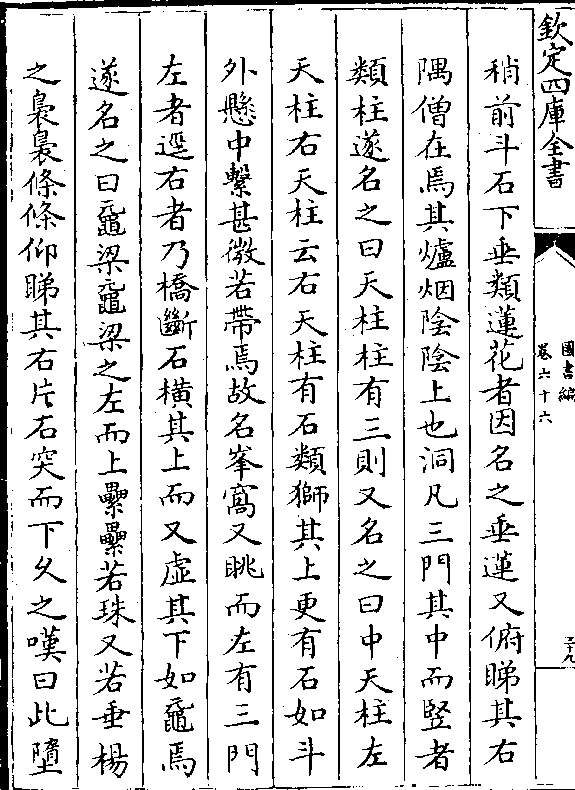 欽定四庫全書
圖書編
卷六十六
三十九
稍前斗石下垂類蓮花者因名之垂蓮又俯睇其右
隅僧在焉其爐烟陰陰上也洞凡三門其中而豎者
類柱遂名之曰天柱柱有三則又名之曰中天柱左
天柱右天柱云右天柱有石類獅其上更有石如斗
外懸中繫甚微若帶焉故名峯窩又眺而左有三門
左者逕右者乃橋斷石橫其上而又虛其下如黿焉
遂名之曰黿梁黿梁之左而上纍纍若珠又若垂楊
之裊裊條條仰睇其右片石突而下久之嘆曰此墮